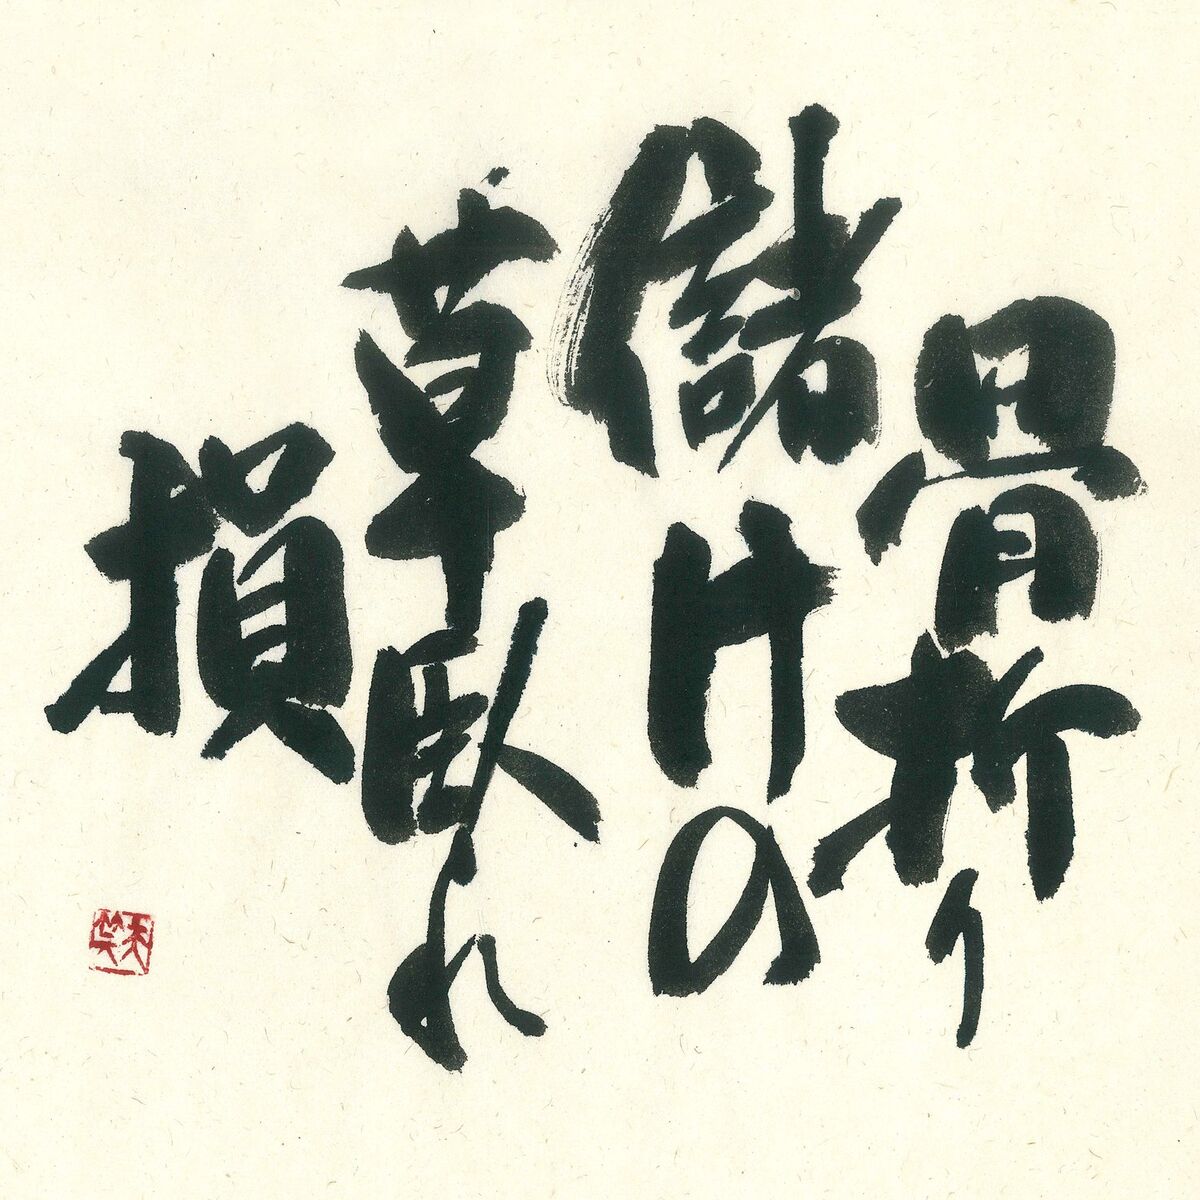 骨折り
儲けの
草臥れ
損
天笑